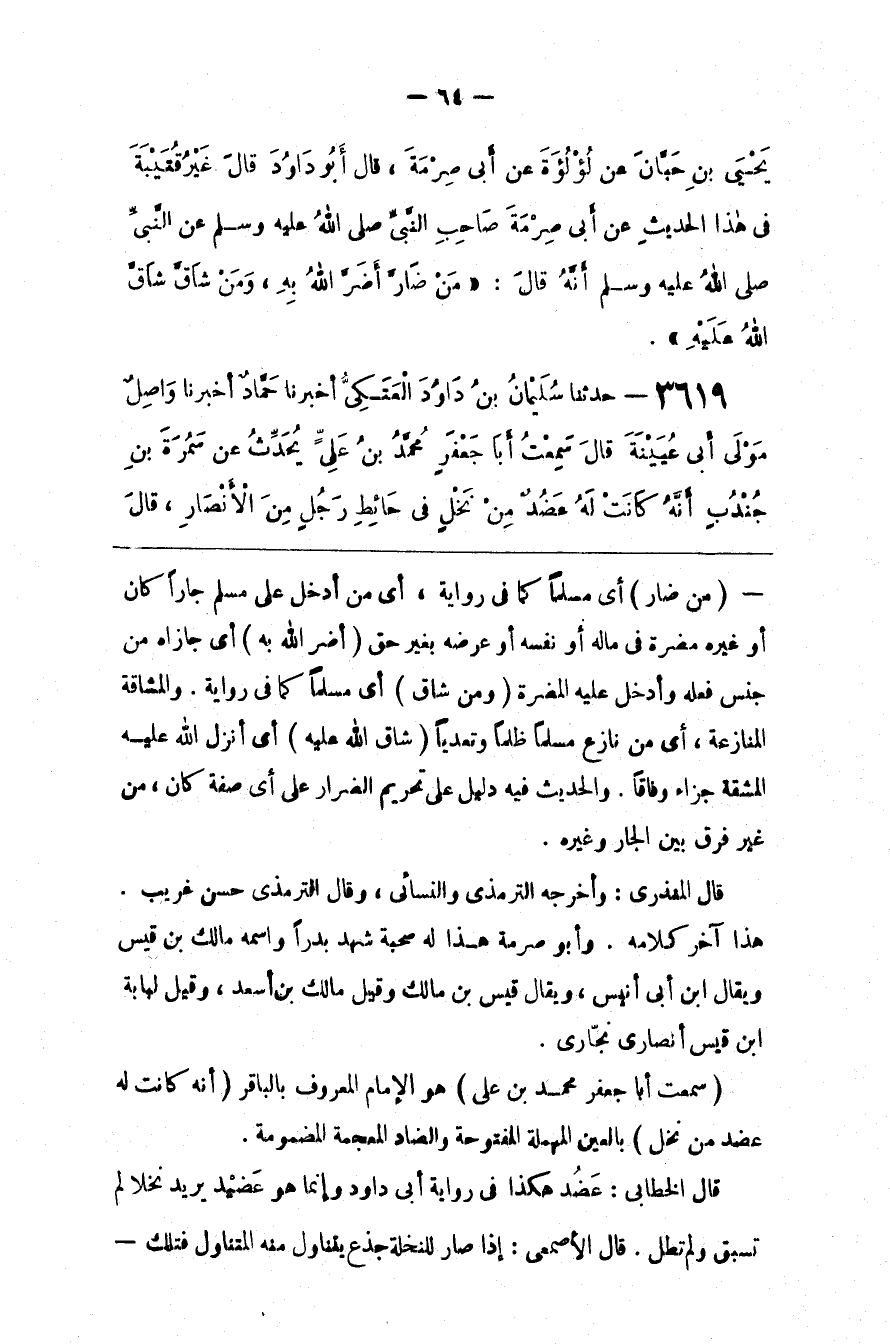 — ٦٤ —
يَحْيَى بنِ حَبَّانَ عن لُؤْلُؤَةَ عن أَبى صِرْمَةَ ، قال أَبُو دَاوُدَ قالَ غَيْرُ قُتَيْبَةَ
فى هٰذا الحديثِ عن أَبى صِرْمَةَ صَاحِبِ النَّبىِّ صلى اللهُ عليه وسـلم عن النَّبىِّ
صلى اللهُ عليه وسـلم أَنَّهُ قالَ : « مَنْ ضَارَّ أَضَرَّ اللهُ بِهِ ، وَمَنْ شَاقَّ شَاقَّ
اللهُ عَلَيْهِ » .
٣٦١٩ — حدثنا سُلَيْمانُ بنُ دَاوُدَ الْعَتَـكِىُّ أخبرنا حَمَّادٌ أخبرنا وَاصِلٌ
مَوْلَى أَبى عُيَيْنَةَ قالَ سَمِعْتُ أَبَا جَعْفَرٍ مُحمَّدَ بنَ عَلِىٍّ يُحَدِّثُ عن سَمُرَةَ بنِ
جُنْدُبٍ أَنَّهُ كَانَتْ لَهُ عَضُدٌ مِنْ نَخْلٍ فى حَائِطِ رَجُلٍ مِنَ الْأَنْصَارِ ، قالَ
— ( من ضار ) أى مسلماً كما فى رواية ، أى من أدخل على مسلم جاراً كان
أو غيره مضرة فى ماله أو نفسه أو عرضه بغير حق ( أضر الله به ) أى جازاه من
جنس فعله وأدخل عليه المضرة ( ومن شاق ) أى مسلماً كما فى رواية . والمشاقة
المنازعة ، أى من نازع مسلماً ظلماً وتعدياً ( شاق الله عليه ) أى أنزل الله عليـه
المشقة جزاء وفاقاً . والحديث فيه دليل على تحريم الضرار على أى صفة كان ، من
غير فرق بين الجار وغيره .
قال المنذرى : وأخرجه الترمذى والنسائى ، وقال الترمذى حسن غريب .
هذا آخر كلامه . وأبو صرمة هـذا له صحبة شهد بدراً واسمه مالك بن قيس
ويقال ابن أبى أنيس ، ويقال قيس بن مالك وقيل مالك بن أسعد ، وقيل لبابة
ابن قيس أنصارى نجّارى .
( سمعت أبا جعفر محمـد بن على ) هو الإمام المعروف بالباقر ( أنه كانت له
عضد من نخل ) بالعين المهملة المفتوحة والضاد المعجمة المضمومة .
قال الخطابى : عَضُد هكذا فى رواية أبى داود وإنما هو عَضيْد يريد نخلا لم
تسبق ولم تطل . قال الأصمعى : إذا صار للنخلة جذع يتناول منه المتناول فتلك —